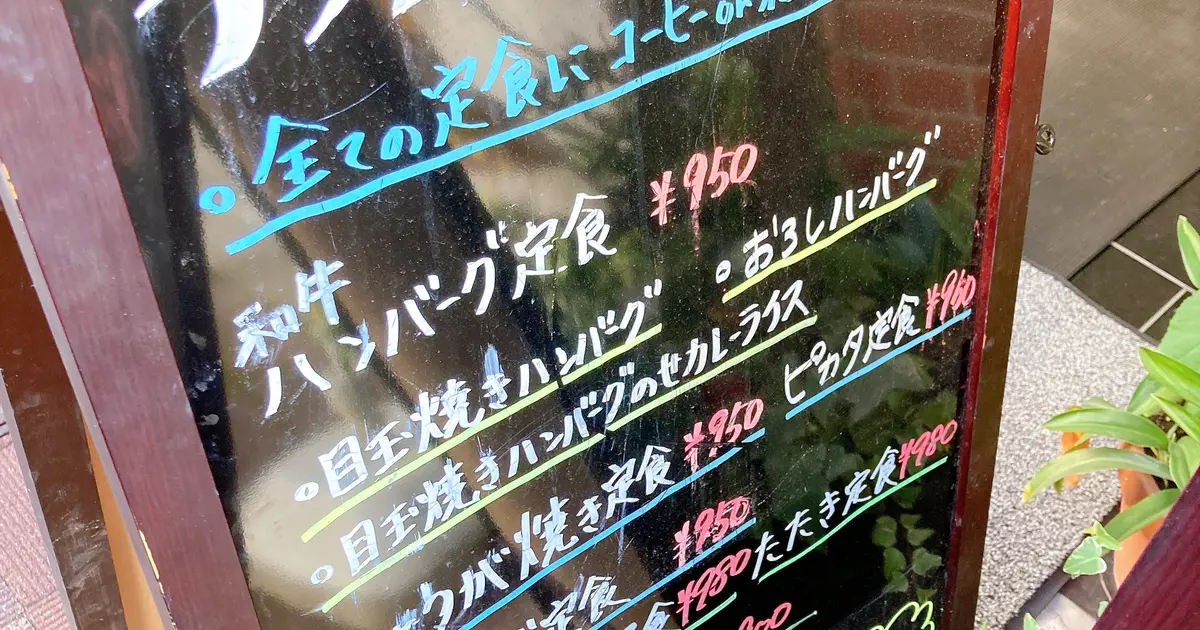 全ての定食にコーヒーor
和牛
ハンバーグ定食 ¥950
目玉焼きハンバーグ
おろしハンバーグ
目玉焼きハンバーグのせカレーライス
うが焼き定食 ¥950
ピカタ定食 ¥950
定食 ¥950
たたき定食 ¥980
定食 ¥980